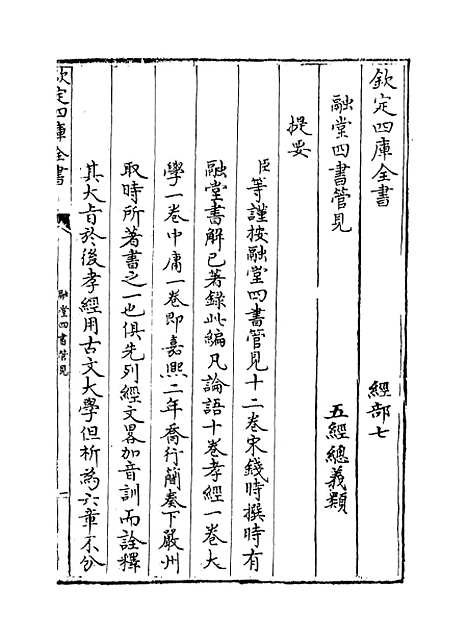 欽定四庫全書　經部七
融堂四書管見　五經總義類
提要
臣等謹按融堂四書管見十二卷宋錢時撰時有
融堂書解已著錄此編凡論語十卷孝經一卷大
學一卷中庸一卷即嘉熙二年喬行簡奏下嚴州
取時所著書之一也俱先列經文畧加音訓而詮釋
其大㫖於後孝經用古文大學但析為六章不分
欽定四庫全書
融堂四書管見
一